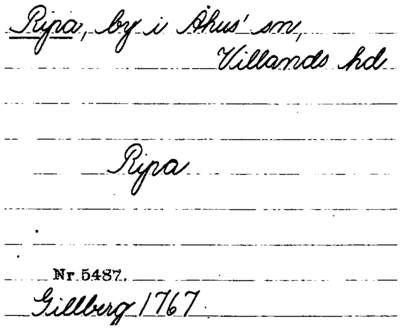 Ripa, by i Åhus' sn,
Villands hd
Ripa
Nr 5487.
Gillberg 1767.